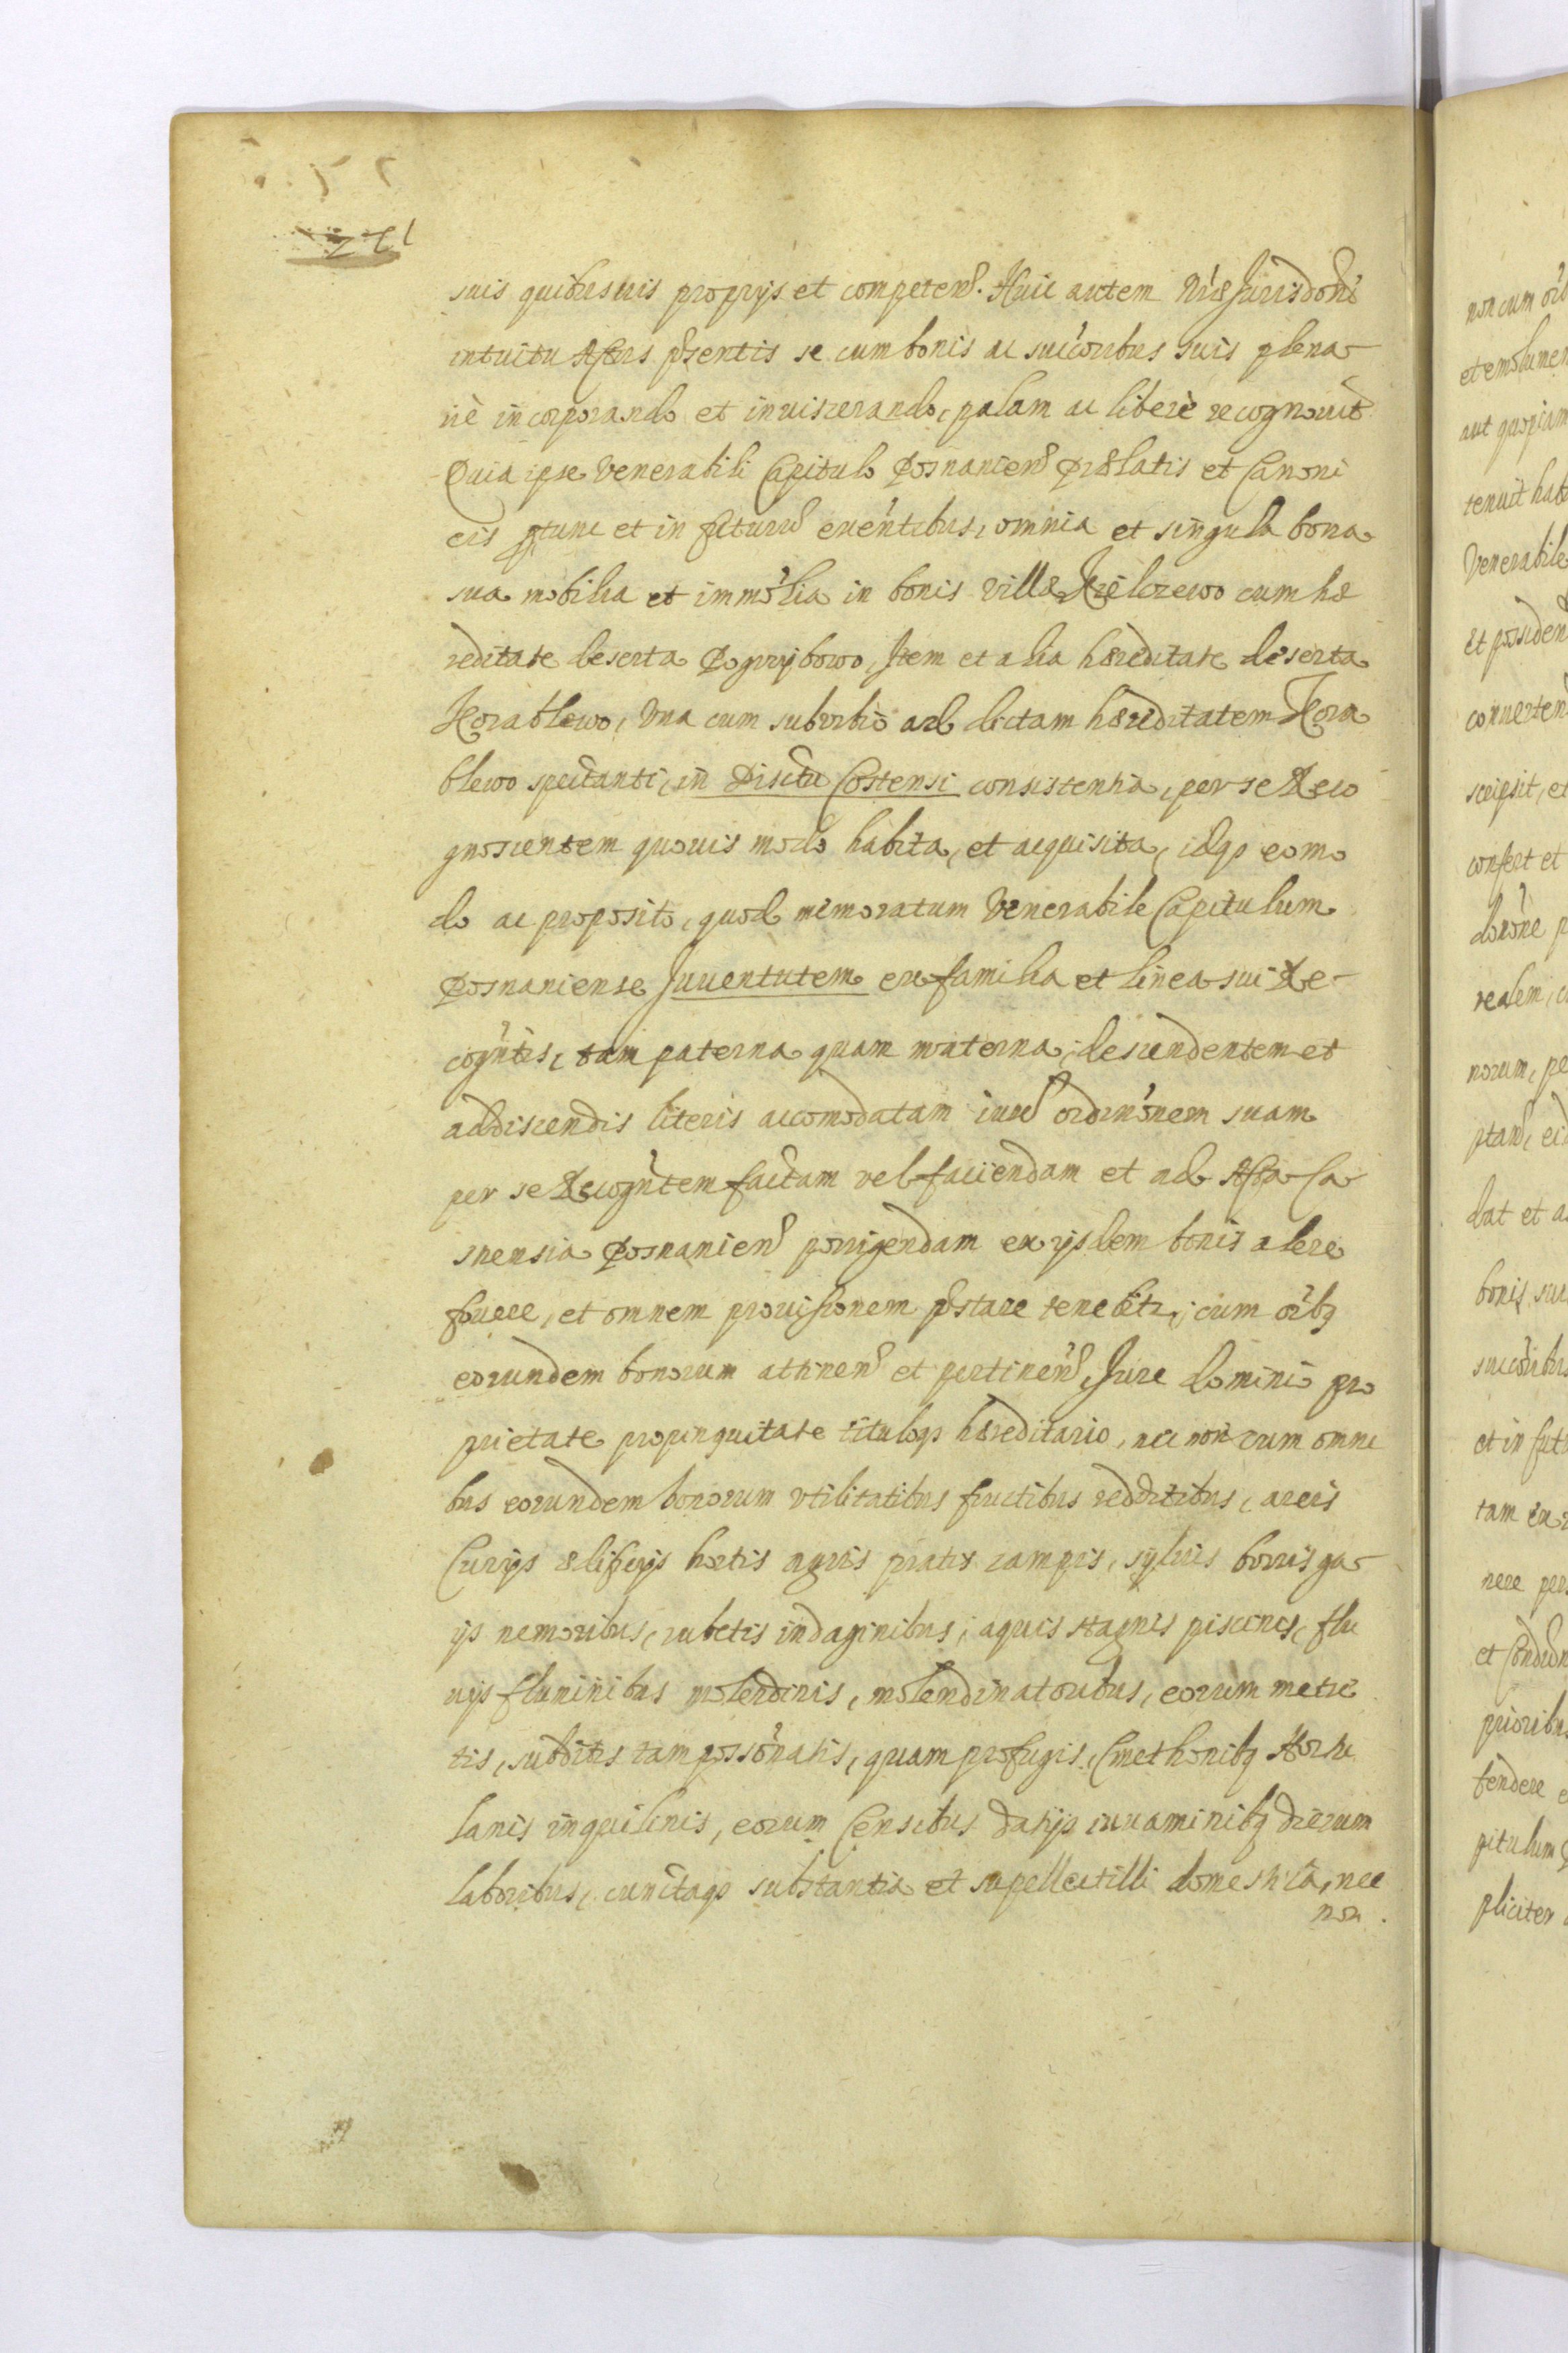 suis quibusuis proprijs et competen. Huic autem Nræ Jurisdoni
intuitu Actus pñtis se cum bonis ac succoribus suis plena-
riè incorporando et inuiscerando, palam ac liberè recognouit
Quia ipse Venerabili Capitulo Posnanien Prælatis et Canoni
cis ptunc et in futurū exñtibus, omnia et singula bona
sua mobilia et immolia in bonis villæ cum hæ
reditate deserta Popowo, Item et alia hæreditate deserta
Korablewo, Vna cum suburbio ad dictam hæreditatem Kora
blewo spectanti, in Disctu Costensi consistentia, per se Reco
gnoscentem quouis modo habita, et acquisita, idqz eo mo
do ac proposito, quod memoratum Venerabile Capitulum
Posnaniense Juuentutem ex familia et linea sui Re-
cogntis, tam paterna quam materna, descendentem et
addiscendis literis accomodatam iux ordinonem suam
per se Recogntem factam vel faciendam et ad Acta Ca
strensia Posnanien porrigendam ex ijsdem bonis alere
fouere, et omnem prouisionem pstare tenebitr, cum oibz
eorundem bonorum attinen et pertinen, Jure Dominio pro
prietate propinquitate tituloqz hæreditario, nec non cum omni
bus eorundem bonorum vtilitatibus fructibus redditibus, areis
Curijs ædificijs hortis agris pratis campis, syluis borris ga-
ijs nemoribus, rubetis indaginibus, aquis stagnis piscinis, flu
uijs fluminibus molendinis, molendinatoribus, eorum metre
tis, subditis tam possonatis, quam profugis, Cmethonibz Hortu
lanis inquilinis, eorum Censibus datijs iuuaminibz dierum
laboribus, cunctaqz substantia et supellectilli domestica, nec
non.